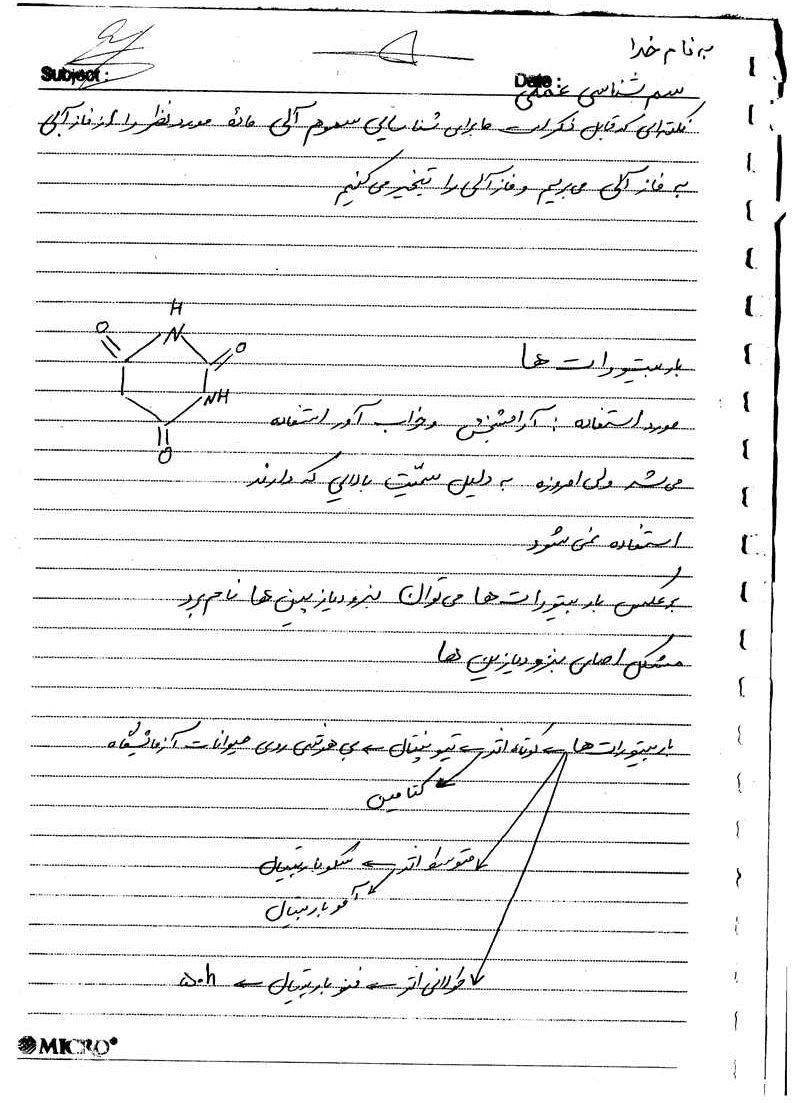 به نام خدا
Subject:
Date:
سم شناسی عملی
نکته‌ای که قابل ذکر است ما برای شناسایی سموم آلی ماده مورد نظر را از فاز آبی
به فاز آلی می‌بریم و فاز آلی را تبخیر می‌کنیم
H
N
O
O
NH
O
باربیتورات ها
مورد استفاده : آرامبخش و خواب آور استفاده
می‌شد ولی امروزه به دلیل سمّیّت بالایی که دارند
استفاده نمی شود
برعکس باربیتورات ها می توان بنزودیازپین ها نام برد
مشکل اصلی بنزودیازپین ها
باربیتورات ها ← کوتاه اثر ← تیوپنتال ← بی هوشی روی حیوانات آزمایشگاه
کتامین
متوسط اثر ← سکوباربیتال
آموباربیتال
طولانی اثر ← فنوباربیتال ← ۵۰h
MICRO